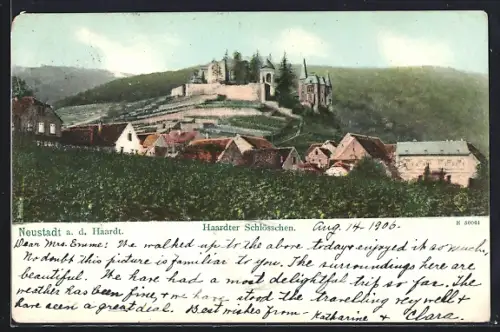 Neustadt a. d. Haardt. Haardter Schlösschen. Aug. 14-1906.
Dear Mrs. Emme: We walked up to the above today & enjoyed it so much,
No doubt this picture is familiar to you. The surroundings here are
beautiful. We have had a most delightful trip so far. The
weather has been fine, & we have stood the travelling very well &
have seen a great deal. Best wishes from - Katharine & Clara.